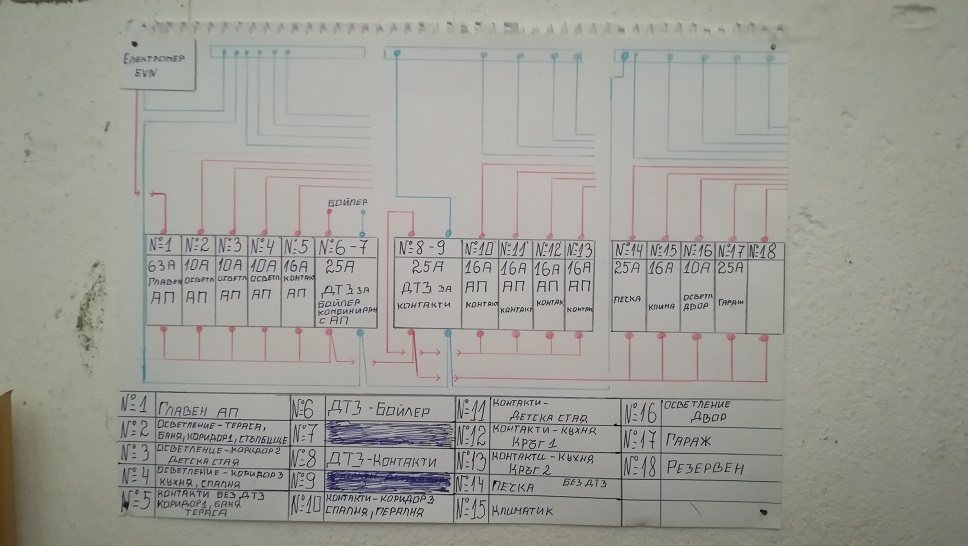 Електромер
EVN
Бойлер
№1 №2 №3 №4 №5 №6-7
63А 10А 10А 10А 16А 25А
Главен Осветл Осветл Осветл Контак ДТЗ за
АП АП АП АП АП Бойлер
Комбиниран
с АП
№8-9 №10 №11 №12 №13
25А 16А 16А 16А 16А
ДТЗ за АП АП АП АП
контакти контакт контакт контак контак
№14 №15 №16 №17 №18
25А 16А 10А 25А
печка клима осветл гараж
двор
№1 Главен АП
№2 Осветление-тераса,
баня, коридор1, стълбище
№3 Осветление-коридор2
Детска стая
№4 Осветление-коридор3
кухня, спалня
№5 Контакти без ДТЗ
коридор1, баня
тераса
№6 ДТЗ-Бойлер
№7
№8 ДТЗ-Контакти
№9
№10 Контакти-коридор3
спалня, пералня
№11 Контакти-
Детска стая
№12 Контакти-кухня
кръг 1
№13 Контакти-кухня
кръг 2
№14 Печка без ДТЗ
№15 Климатик
№16 Осветление
двор
№17 Гараж
№18 Резервен